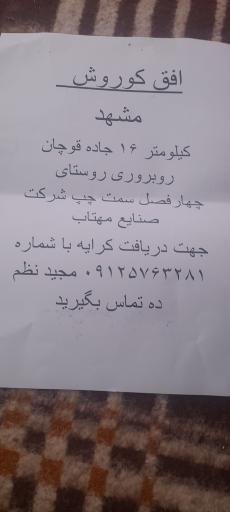 افق کوروش
مشهد
کیلومتر ۱۶ جاده قوچان
روبروری روستای
چهارفصل سمت چپ شرکت
صنایع مهتاب
جهت دریافت کرایه با شماره
۰۹۱۲۵۷۶۳۲۸۱ مجید نظم
ده تماس بگیرید